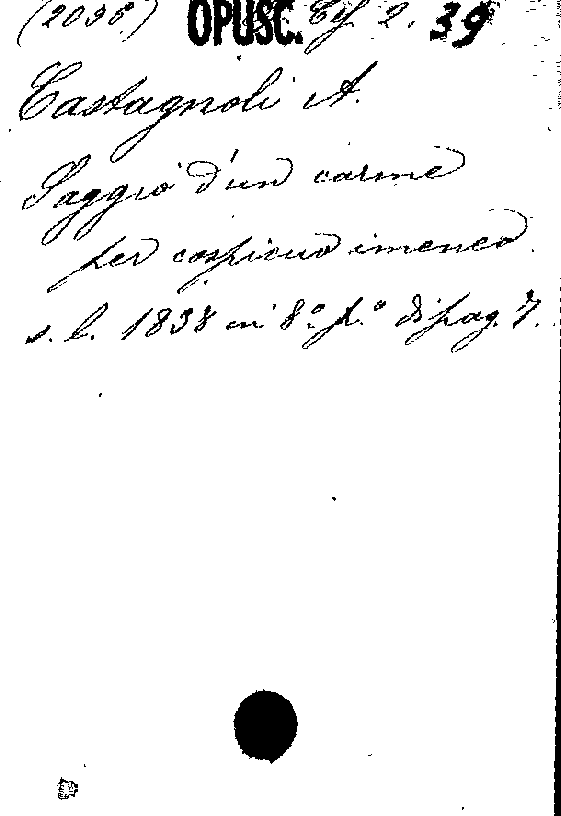 (2036) OPUSC. 2. 39
Castagnoli A.
Saggio d'un carme
per cospicuo imeneo
s. l. 1838 in 8.º p.º di pag. 7.